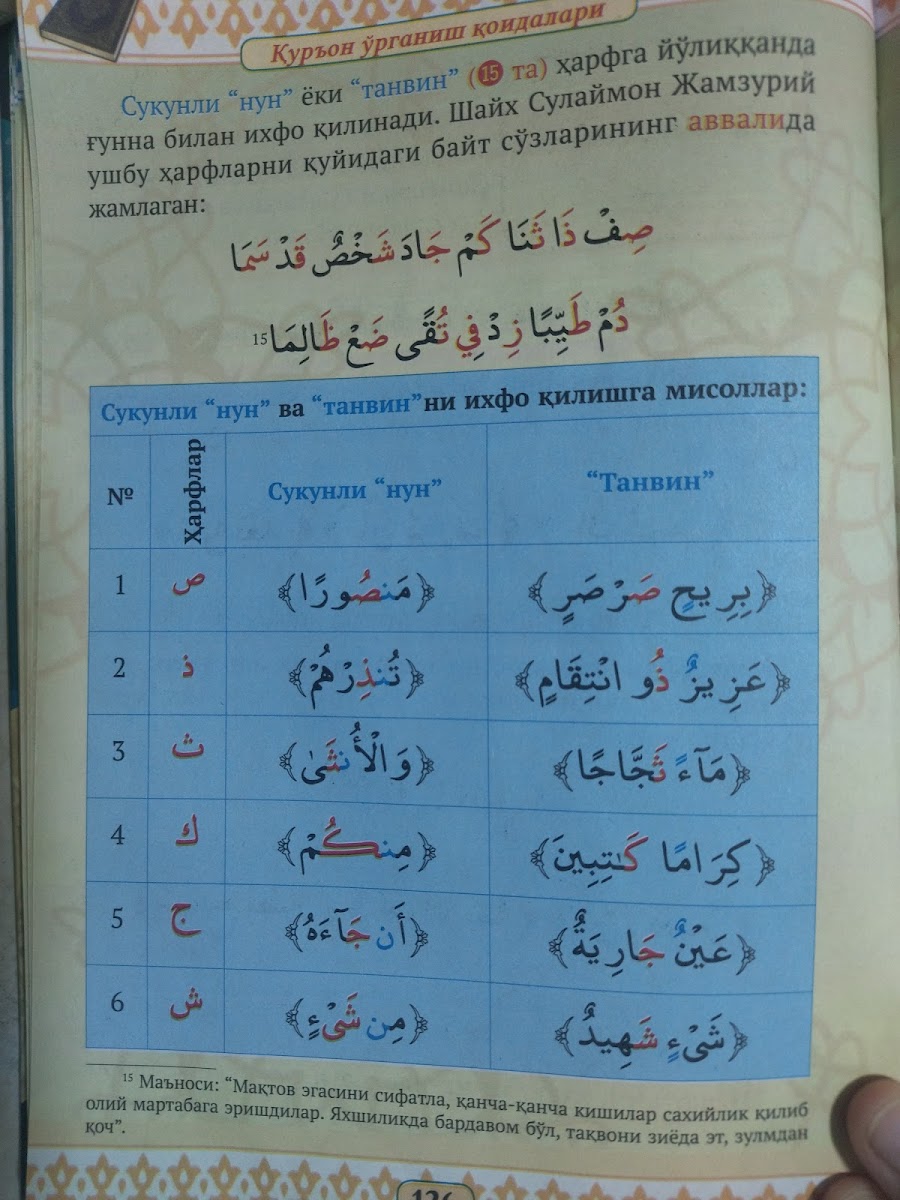 Қуръон ўрганиш қоидалари
Сукунли “нун” ёки “танвин” (15 та) ҳарфга йўлиққанда
ғунна билан ихфо қилинади. Шайх Сулаймон Жамзурий
ушбу ҳарфларни қуйидаги байт сўзларининг аввалида
жамлаган:
صِفْ ذَا ثَنَا كَمْ جَادَ شَخْصٌ قَدْ سَمَا
دُمْ طَيِّبًا زِدْ فِي تُقًى ضَعْ ظَالِمَا15
Сукунли “нун” ва “танвин”ни ихфо қилишга мисоллар:
№ Ҳарфлар Сукунли “нун” “Танвин”
1 ص ﴿مَنصُورًا﴾ ﴿بِرِيحٍ صَرْصَرٍ﴾
2 ذ ﴿تُنذِرْهُمْ﴾ ﴿عَزِيزٌ ذُو انْتِقَامٍ﴾
3 ث ﴿وَالْأُنثَىٰ﴾ ﴿مَآءً ثَجَّاجًا﴾
4 ك ﴿مِنكُمْ﴾ ﴿كِرَامًا كَٰتِبِينَ﴾
5 ج ﴿أَن جَآءَهُ﴾ ﴿عَيْنٌ جَارِيَةٌ﴾
6 ش ﴿مِن شَىْءٍ﴾ ﴿شَىْءٍ شَهِيدٌ﴾
15 Маъноси: “Мақтов эгасини сифатла, қанча-қанча кишилар сахийлик қилиб
олий мартабага эришдилар. Яхшиликда бардавом бўл, тақвони зиёда эт, зулмдан
қоч”.